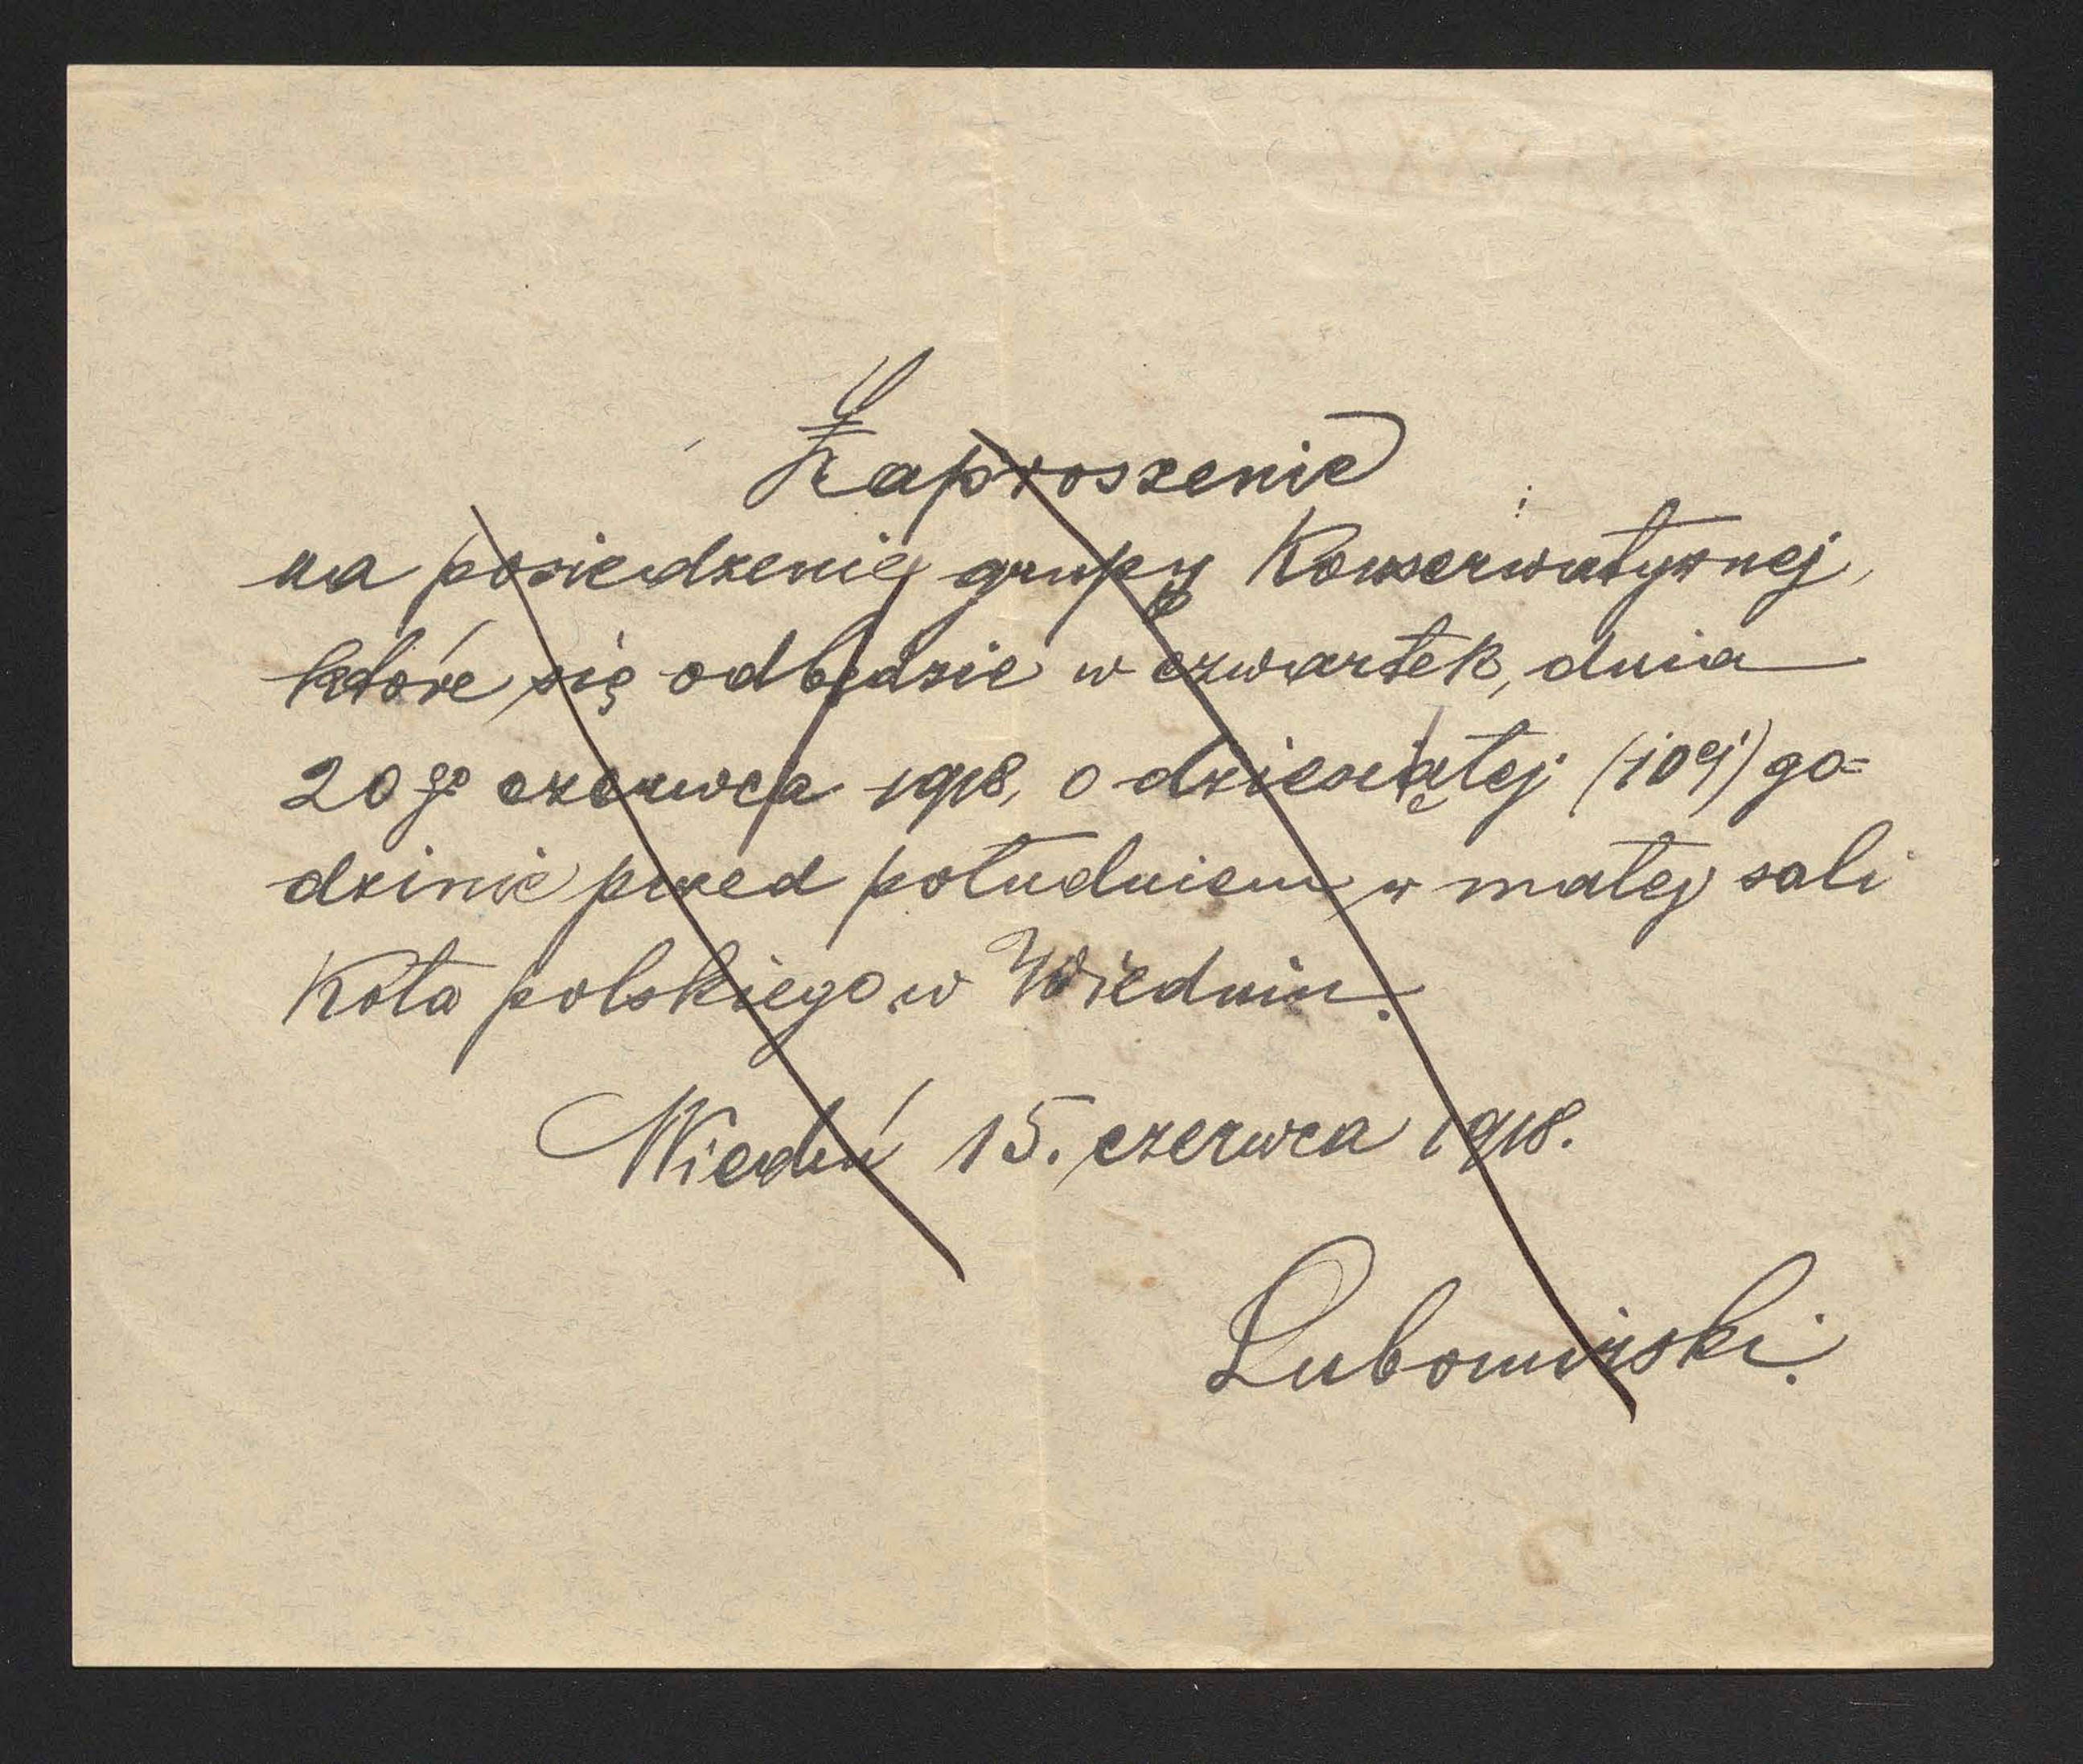 Zaproszenie
na posiedzenie grupy Konserwatywnej,
które się odbędzie w czwartek, dnia
20go czerwca 1918, o dziesiątej (10ej) go=
dzinie przed południem w małej sali
Koła polskiego w Wiedniu.
Wiedeń 15. czerwca 1918.
Lubomirski.